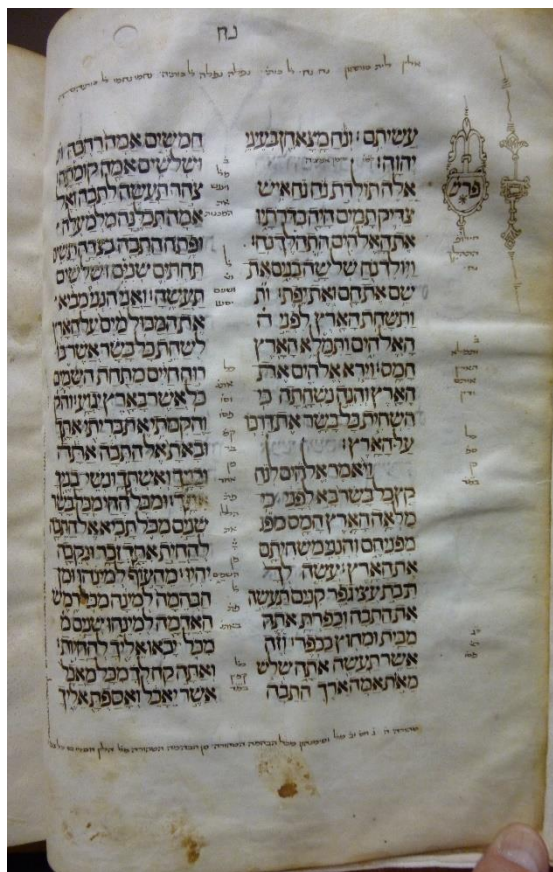 נח
פרש
עשיתם: ונח מצא חן בעיני
יהוה:
אלה תולדת נח נח איש
צדיק תמים היה בדרתיו
את האלהים התהלך נח:
ויולד נח שלשה בנים את
שם את חם ואת יפת: ות
ותשחת הארץ לפני ה
האלהים ותמלא הארץ
חמס: וירא אלהים את
הארץ והנה נשחתה כי
השחית כל בשר את דרכו
על הארץ:
ויאמר אלהים לנח
קץ כל בשר בא לפני כי
מלאה הארץ חמס מפנ
מפניהם והנני משחיתם
את הארץ: עשה לך
תבת עצי גפר קנים תעשה
את התבה וכפרת אתה
מבית ומחוץ בכפר: וזה
אשר תעשה אתה שלש
מאות אמה ארך התבה
חמשים אמה רחבה ו
ושלשים אמה קומתה:
צהר תעשה לתבה ואל
אמה תכלנה מלמעלה
ופתח התבה בצדה תשים
תחתים שנים ושלשים
תעשה: ואני הנני מביא
את המבול מים על הארץ
לשחת כל בשר אשר בו
רוח חיים מתחת השמים
כל אשר בארץ יגוע: והק
והקמתי את בריתי אתך
ובאת אל התבה אתה
ובניך ואשתך ונשי בניך
אתך: ומכל החי מכל בשר
שנים מכל תביא אל התבה
להחית אתך זכר ונקבה
יהיו: מהעוף למינהו ומן
הבהמה למינה מכל רמש
האדמה למינהו שנים מ
מכל יבאו אליך להחיות:
ואתה קח לך מכל מאכל
אשר יאכל ואספת אליך